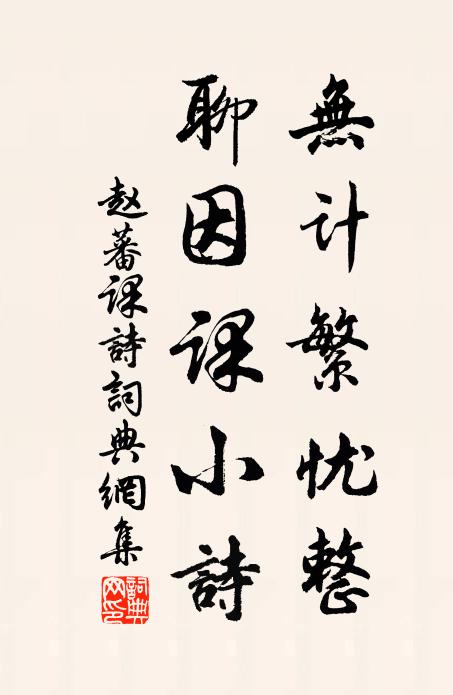 無计繁忧整
聊因课小詩
赵蕃课詩詞典網集
詞典網印